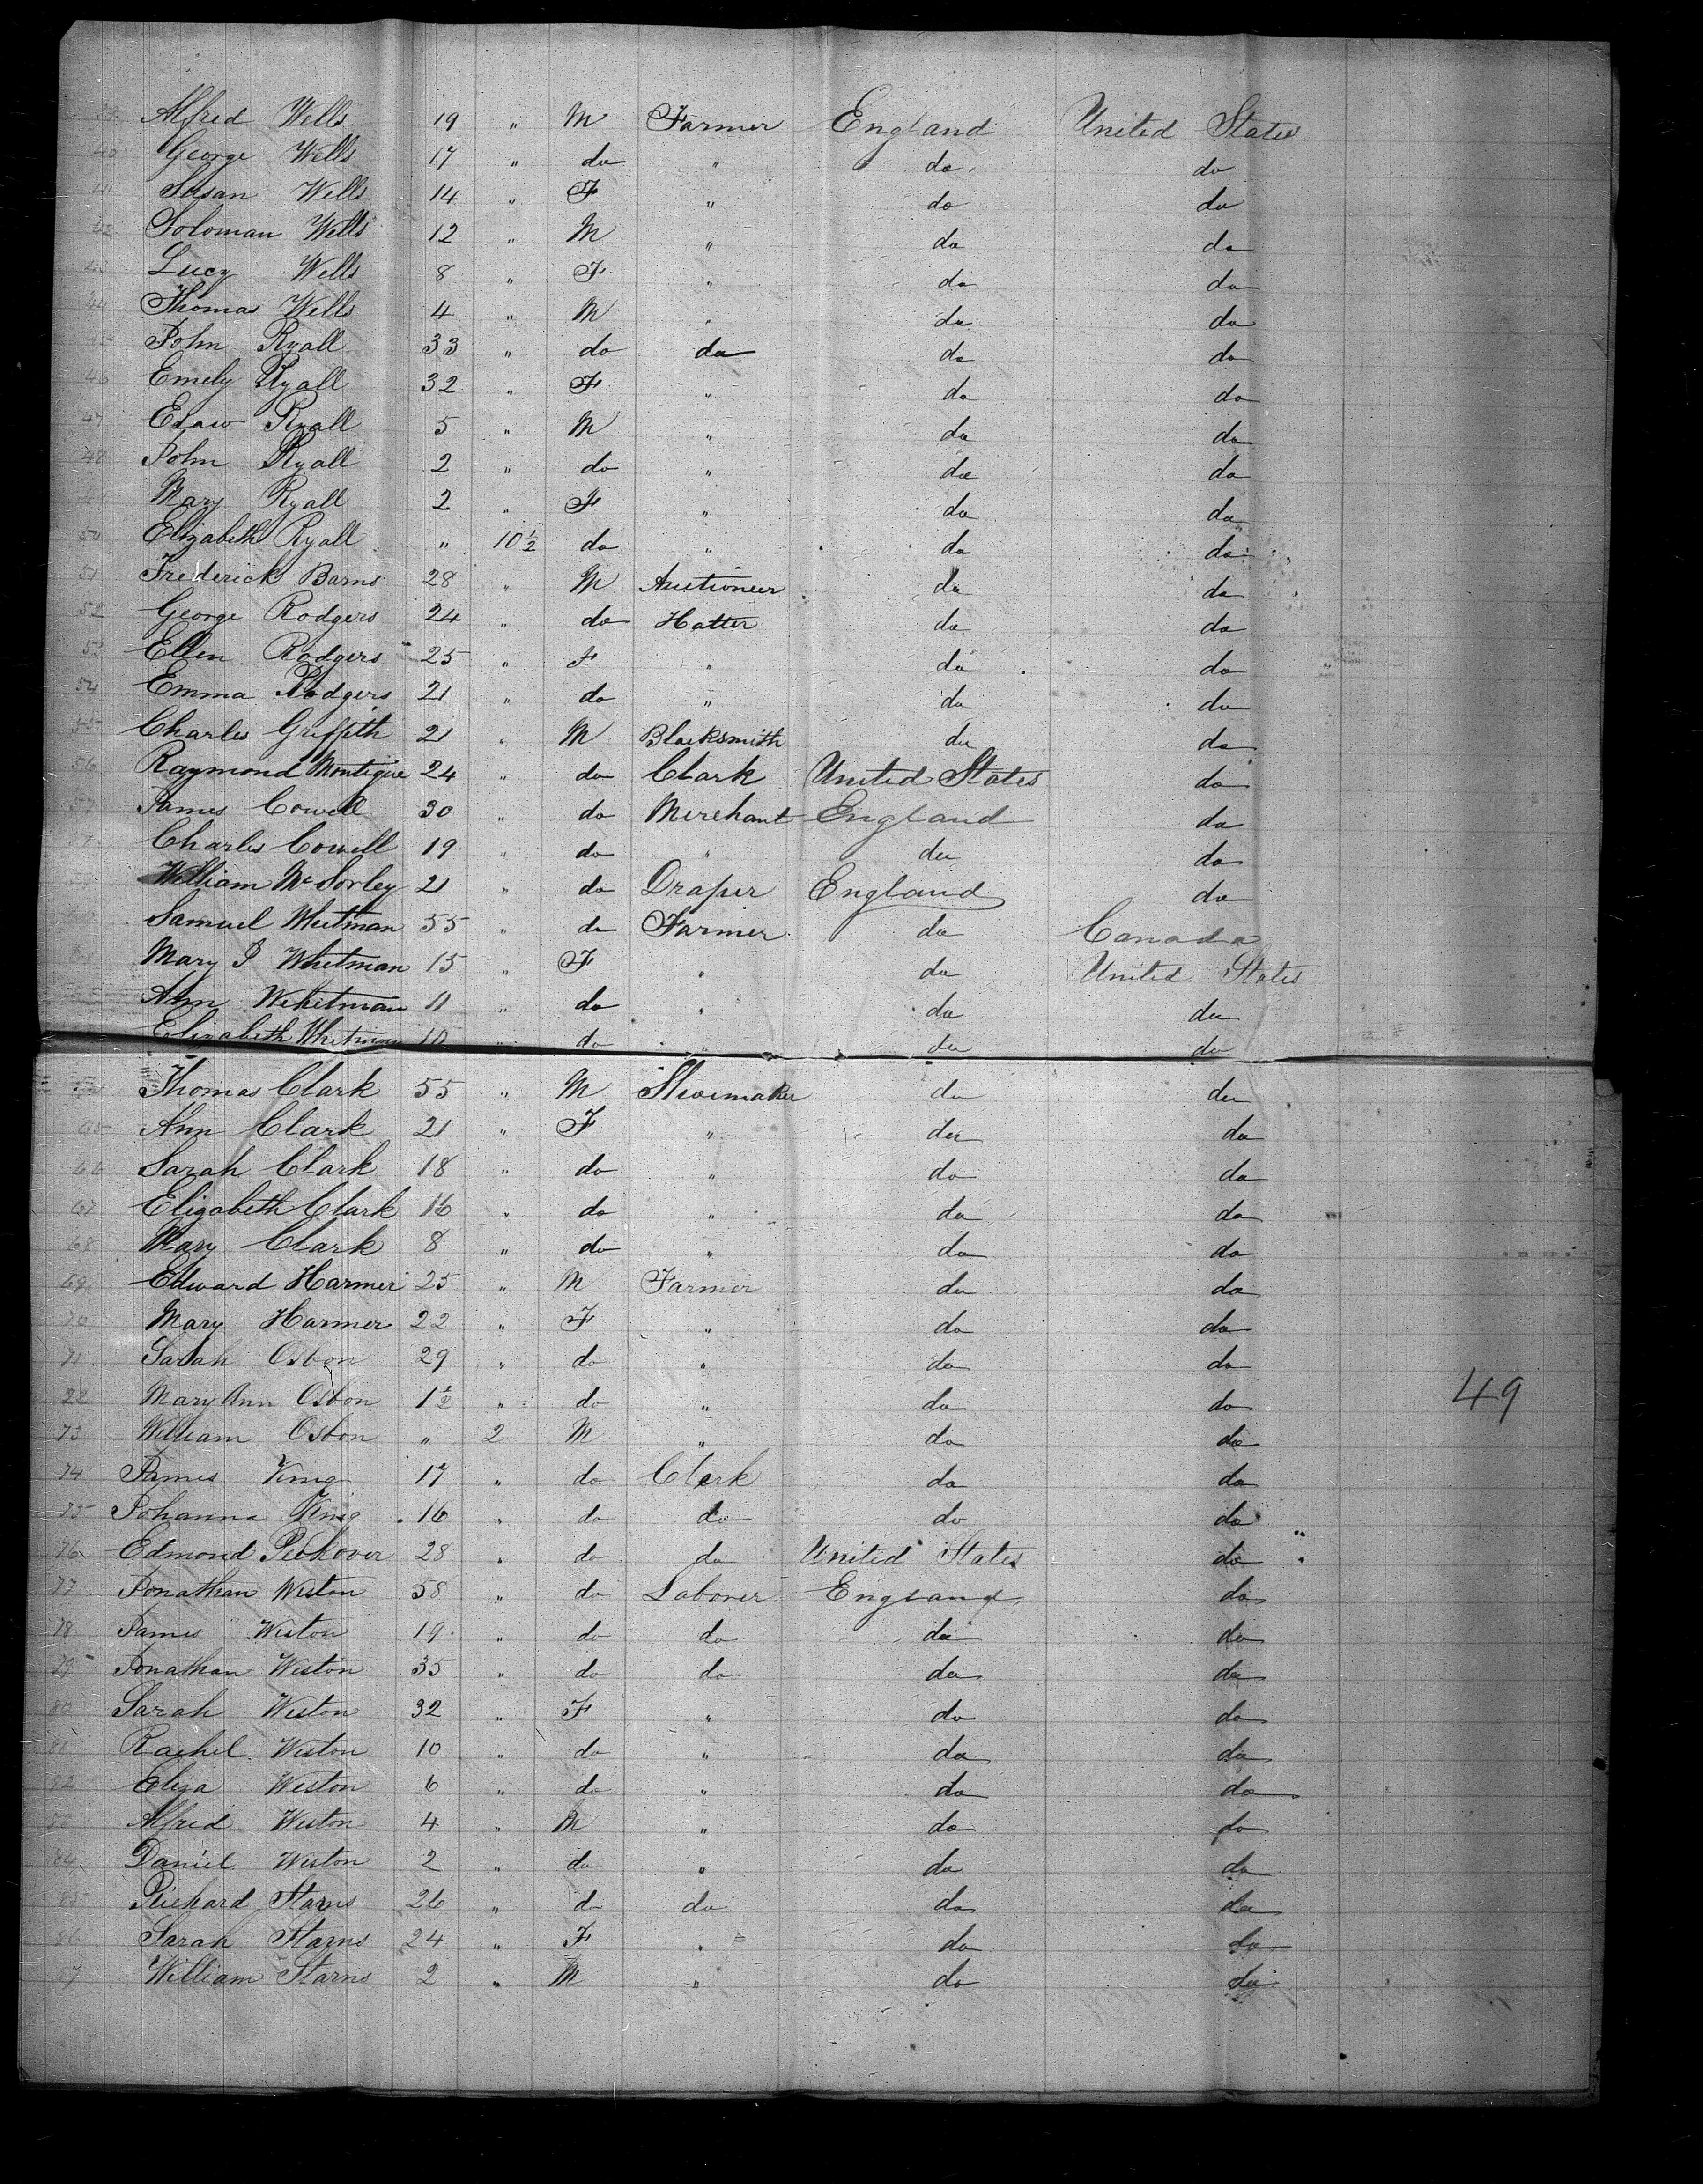 39 Alfred Wells 19 " M Farmer England United States
40 George Wells 17 " do " do do
41 Susan Wells 14 " F " do do
42 Soloman Wells 12 " M " do do
43 Lucy Wells 8 " F " do do
44 Thomas Wells 4 " M " do do
45 John Ryall 33 " do do do do
46 Emely Ryall 32 " F " do do
47 Esaw Ryall 5 " M " do do
48 John Ryall 2 " do " do do
49 Mary Ryall 2 " F " do do
50 Elizabeth Ryall " 10 1/2 do " do do
51 Frederick Barns 28 " M Auctioneer do do
52 George Rodgers 24 " do Hatter do do
53 Ellen Rodgers 25 " F " do do
54 Emma Rodgers 21 " do " do do
55 Charles Griffith 21 " M Blacksmith do do
56 Raymond Montique 24 " do Clark United States do
57 James Cowell 30 " do Merchant England do
58 Charles Cowell 19 " do " do do
59 William McSorley 21 " do Draper England do
Samuel Whitman 55 " do Farmer do Canada
Mary J Whitman 15 " F " do United States
Ann Wehitman 11 " do " do do
Elizabeth Whitman 10 " do " do do
Thomas Clark 55 " M Shoemaker do do
65 Ann Clark 21 " F " do do
66 Sarah Clark 18 " do " do do
67 Elizabeth Clark 16 " do " do do
68 Mary Clark 8 " do " do do
69 Edward Harmer 25 " M Farmer do do
70 Mary Harmer 22 " F " do do
71 Sarah Osbon 29 " do " do do
72 Mary Ann Osbon 1 1/2 " do " do do
49
73 William Osbon " 2 M " do do
74 James King 17 " do Clerk do do
75 Johanna King 16 " do do do do
76 Edmond Peckover 28 " do do United States do
77 Jonathan Weston 58 " do Laborer England do
78 James Weston 19 " do do do do
79 Jonathan Weston 35 " do do do do
80 Sarah Weston 32 " F " do do
81 Rachel Weston 10 " do " do do
82 Eliza Weston 6 " do " do do
83 Alfred Weston 4 " M " do do
84 Daniel Weston 2 " do " do do
85 Richard Starns 26 " do do do do
86 Sarah Starns 24 " F " do do
87 William Starns 2 " M " do do